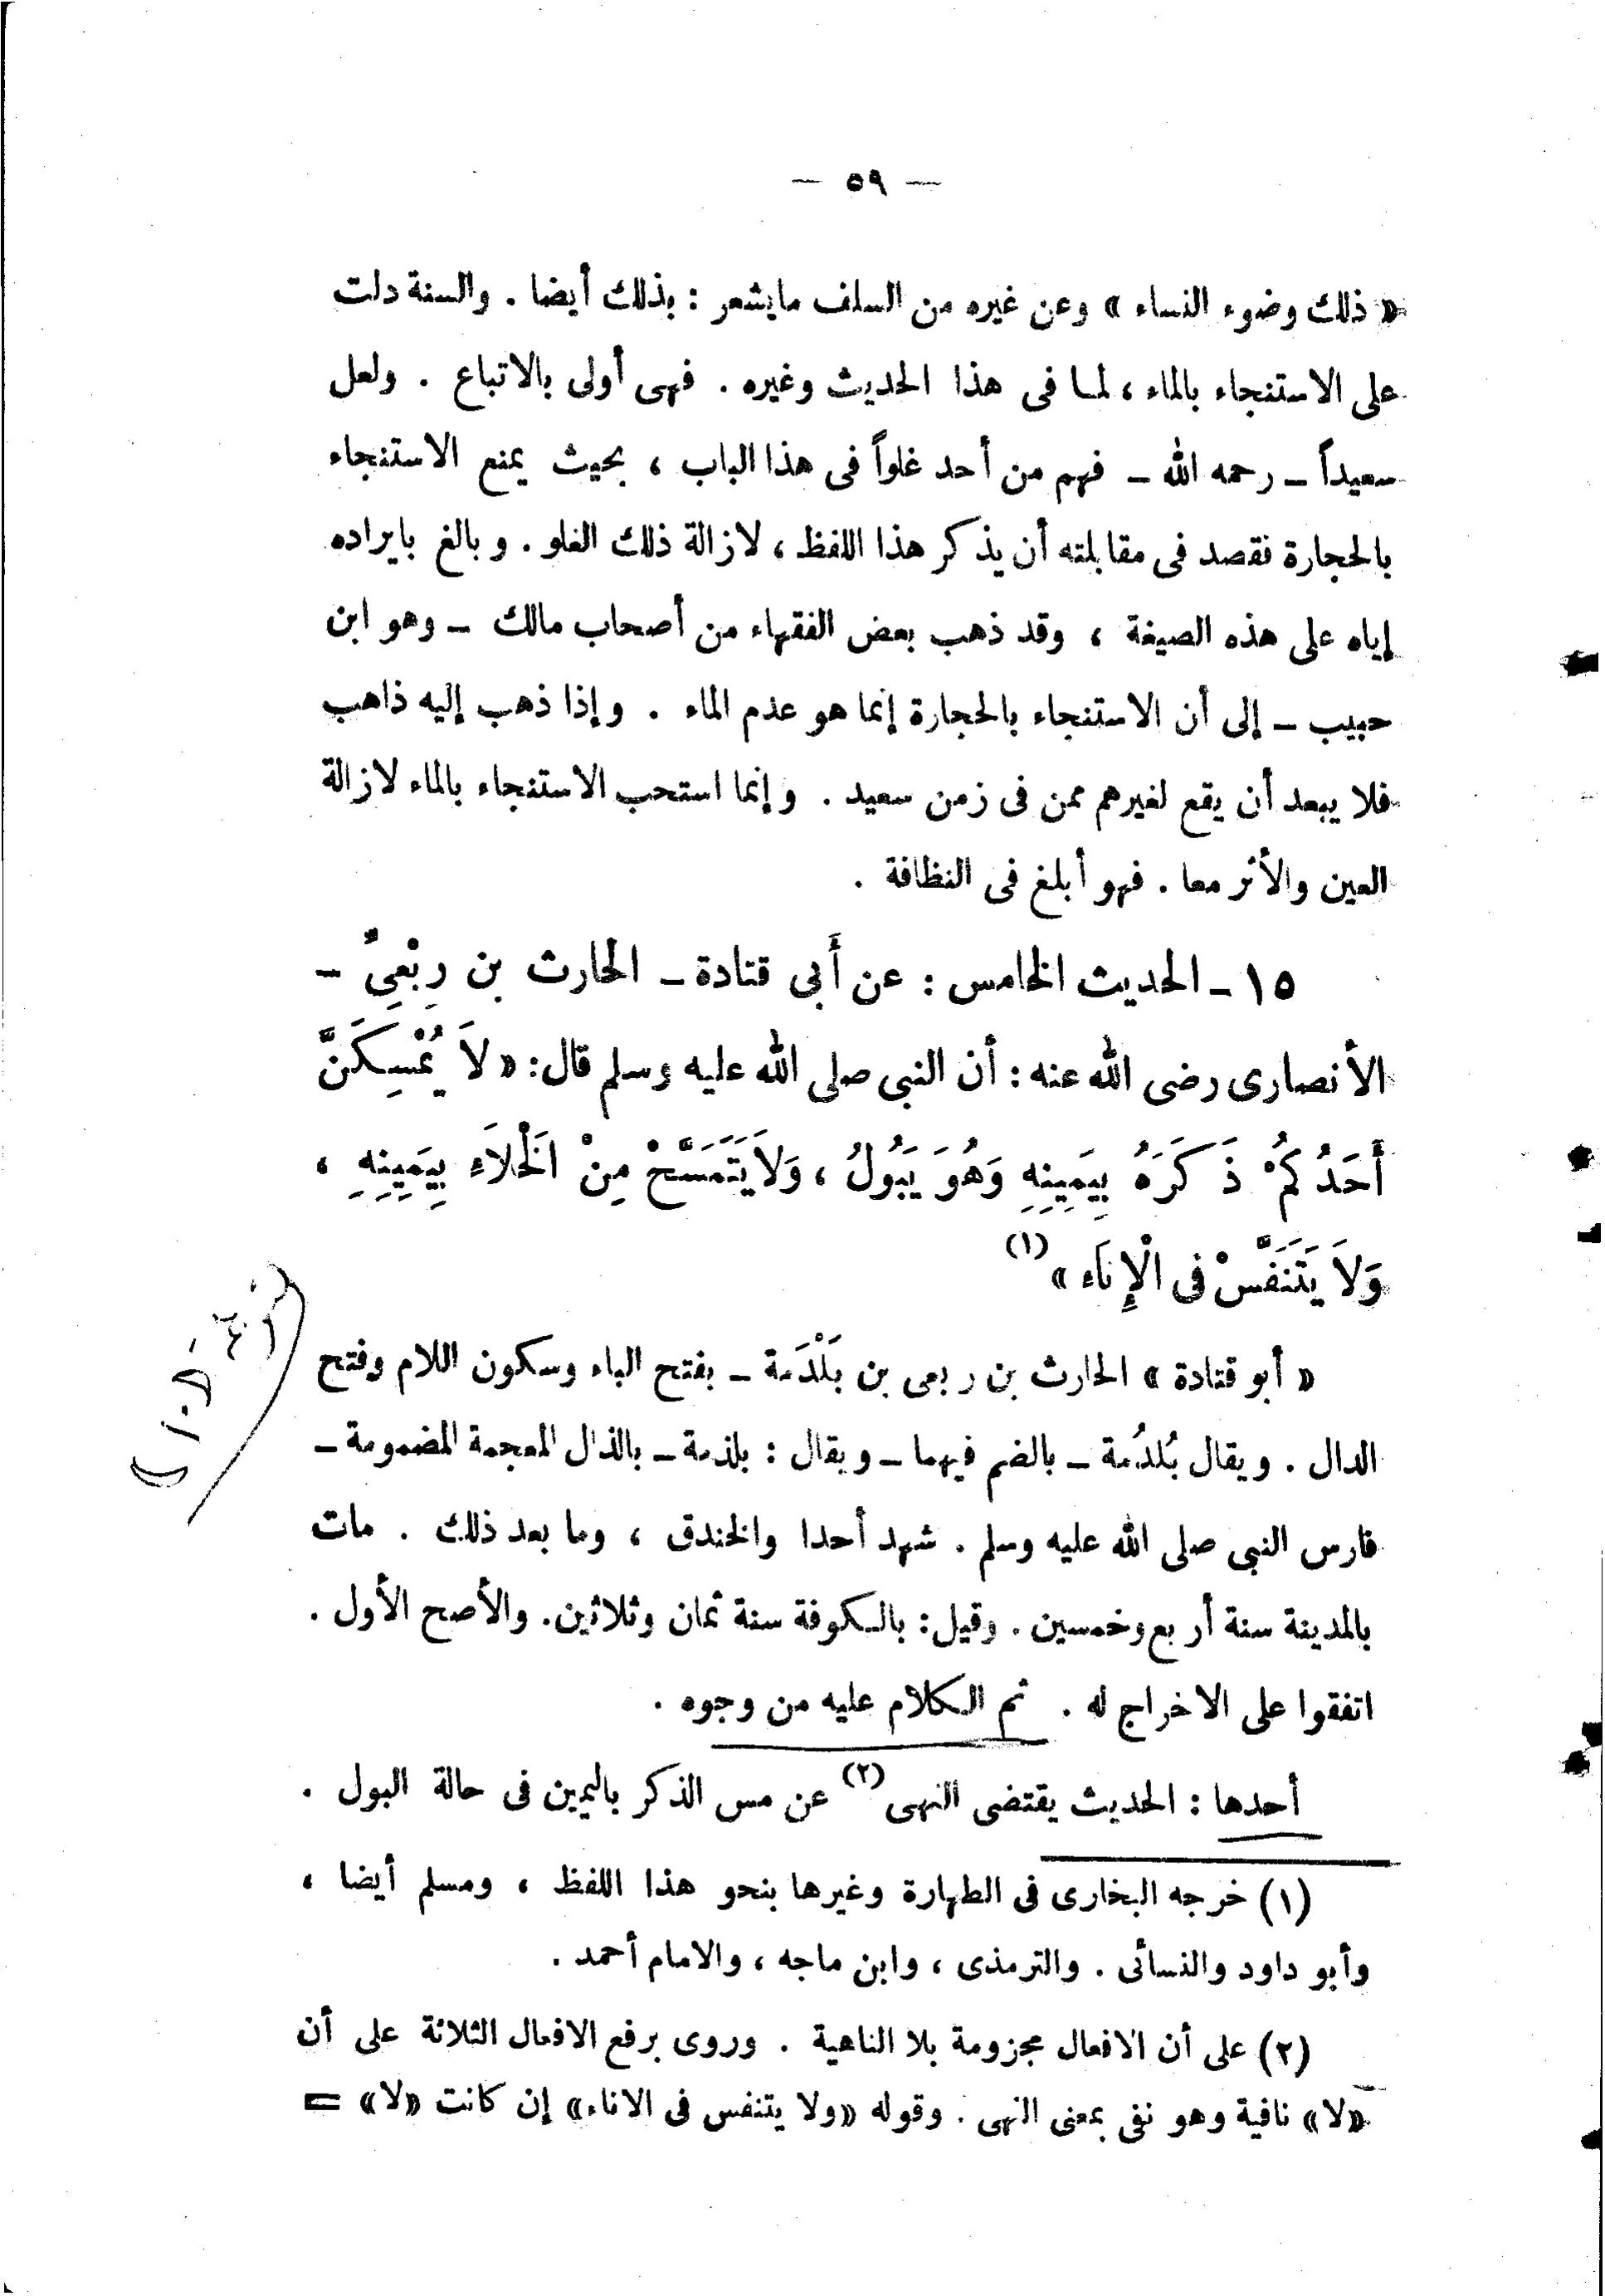 — ٥٩ —
« ذلك وضوء النساء » وعن غيره من السلف مايشعر : بذلك أيضا . والسنة دلت
على الاستنجاء بالماء ، لما فى هذا الحديث وغيره . فهى أولى بالاتباع . ولعل
سعيداً – رحمه الله – فهم من أحد غلواً فى هذا الباب ، بحيث يمنع الاستنجاء
بالحجارة فقصد فى مقابلته أن يذكر هذا اللفظ ، لازالة ذلك الغلو . وبالغ بايراده
إياه على هذه الصيغة ، وقد ذهب بعض الفقهاء من أصحاب مالك – وهو ابن
حبيب – إلى أن الاستنجاء بالحجارة إنما هو عدم الماء . وإذا ذهب إليه ذاهب
فلا يبعد أن يقع لغيرهم ممن فى زمن سعيد . وإنما استحب الاستنجاء بالماء لازالة
العين والأثر معا . فهو أبلغ فى النظافة .
١٥ – الحديث الخامس : عن أَبى قتادة – الحارث بن رِبْعىٍّ –
الأنصارى رضى الله عنه : أن النبى صلى الله عليه وسلم قال : « لاَ يُمْسِكَنَّ
أَحَدُكُمْ ذَكَرَهُ بِيَمِينِهِ وَهُوَ يَبُولُ ، وَلاَ يَتَمَسَّحْ مِنْ الَخْلاَءِ بِيَمِينِهِ ،
وَلاَ يَتَنَفَّسْ فى الْإِنَاء » (١)
« أبو قتادة » الحارث بن ربعى بن بَلْدَمة – بفتح الباء وسكون اللام وفتح
الدال . ويقال بُلدُمة – بالضم فيهما – ويقال : بلذمة – بالذال المعجمة المضمومة –
فارس النبى صلى الله عليه وسلم . شهد أحدا والخندق ، وما بعد ذلك . مات
بالمدينة سنة أربع وخمسين . وقيل : بالكوفة سنة ثمان وثلاثين . والأصح الأول .
اتفقوا على الاخراج له . ثم الكلام عليه من وجوه .
أحدها : الحديث يقتضى النهى (٢) عن مس الذكر باليمين فى حالة البول .
(١) خرجه البخارى فى الطهارة وغيرها بنحو هذا اللفظ ، ومسلم أيضا ،
وأبو داود والنسائى . والترمذى ، وابن ماجه ، والامام أحمد .
(٢) على أن الافعال مجزومة بلا الناهية . وروى برفع الافعال الثلاثة على أن
«لا» نافية وهو نفى بمعنى النهى . وقوله «ولا يتنفس فى الاناء» إن كانت «لا» =